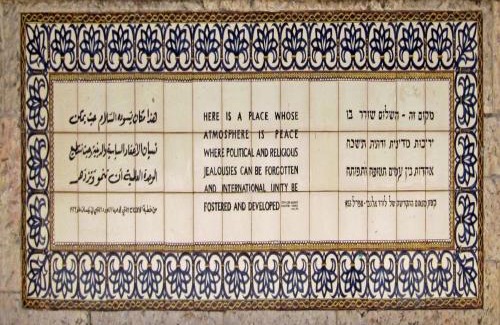 هذا مكان يسوده السلام حيث يمكن
نسيان الأحقاد السياسية والدينية وحيث تستطيع
الوحدة العالمية أن تنمو وتزدهر
HERE IS A PLACE WHOSE
ATMOSPHERE IS PEACE
WHERE POLITICAL AND RELIGIOUS
JEALOUSIES CAN BE FORGOTTEN
AND INTERNATIONAL UNITY BE
FOSTERED AND DEVELOPED
מקום זה - השלום שורר בו
יריבות מדינית ודתית תישכח
ואחדות בין עמים תטופח ותפותח